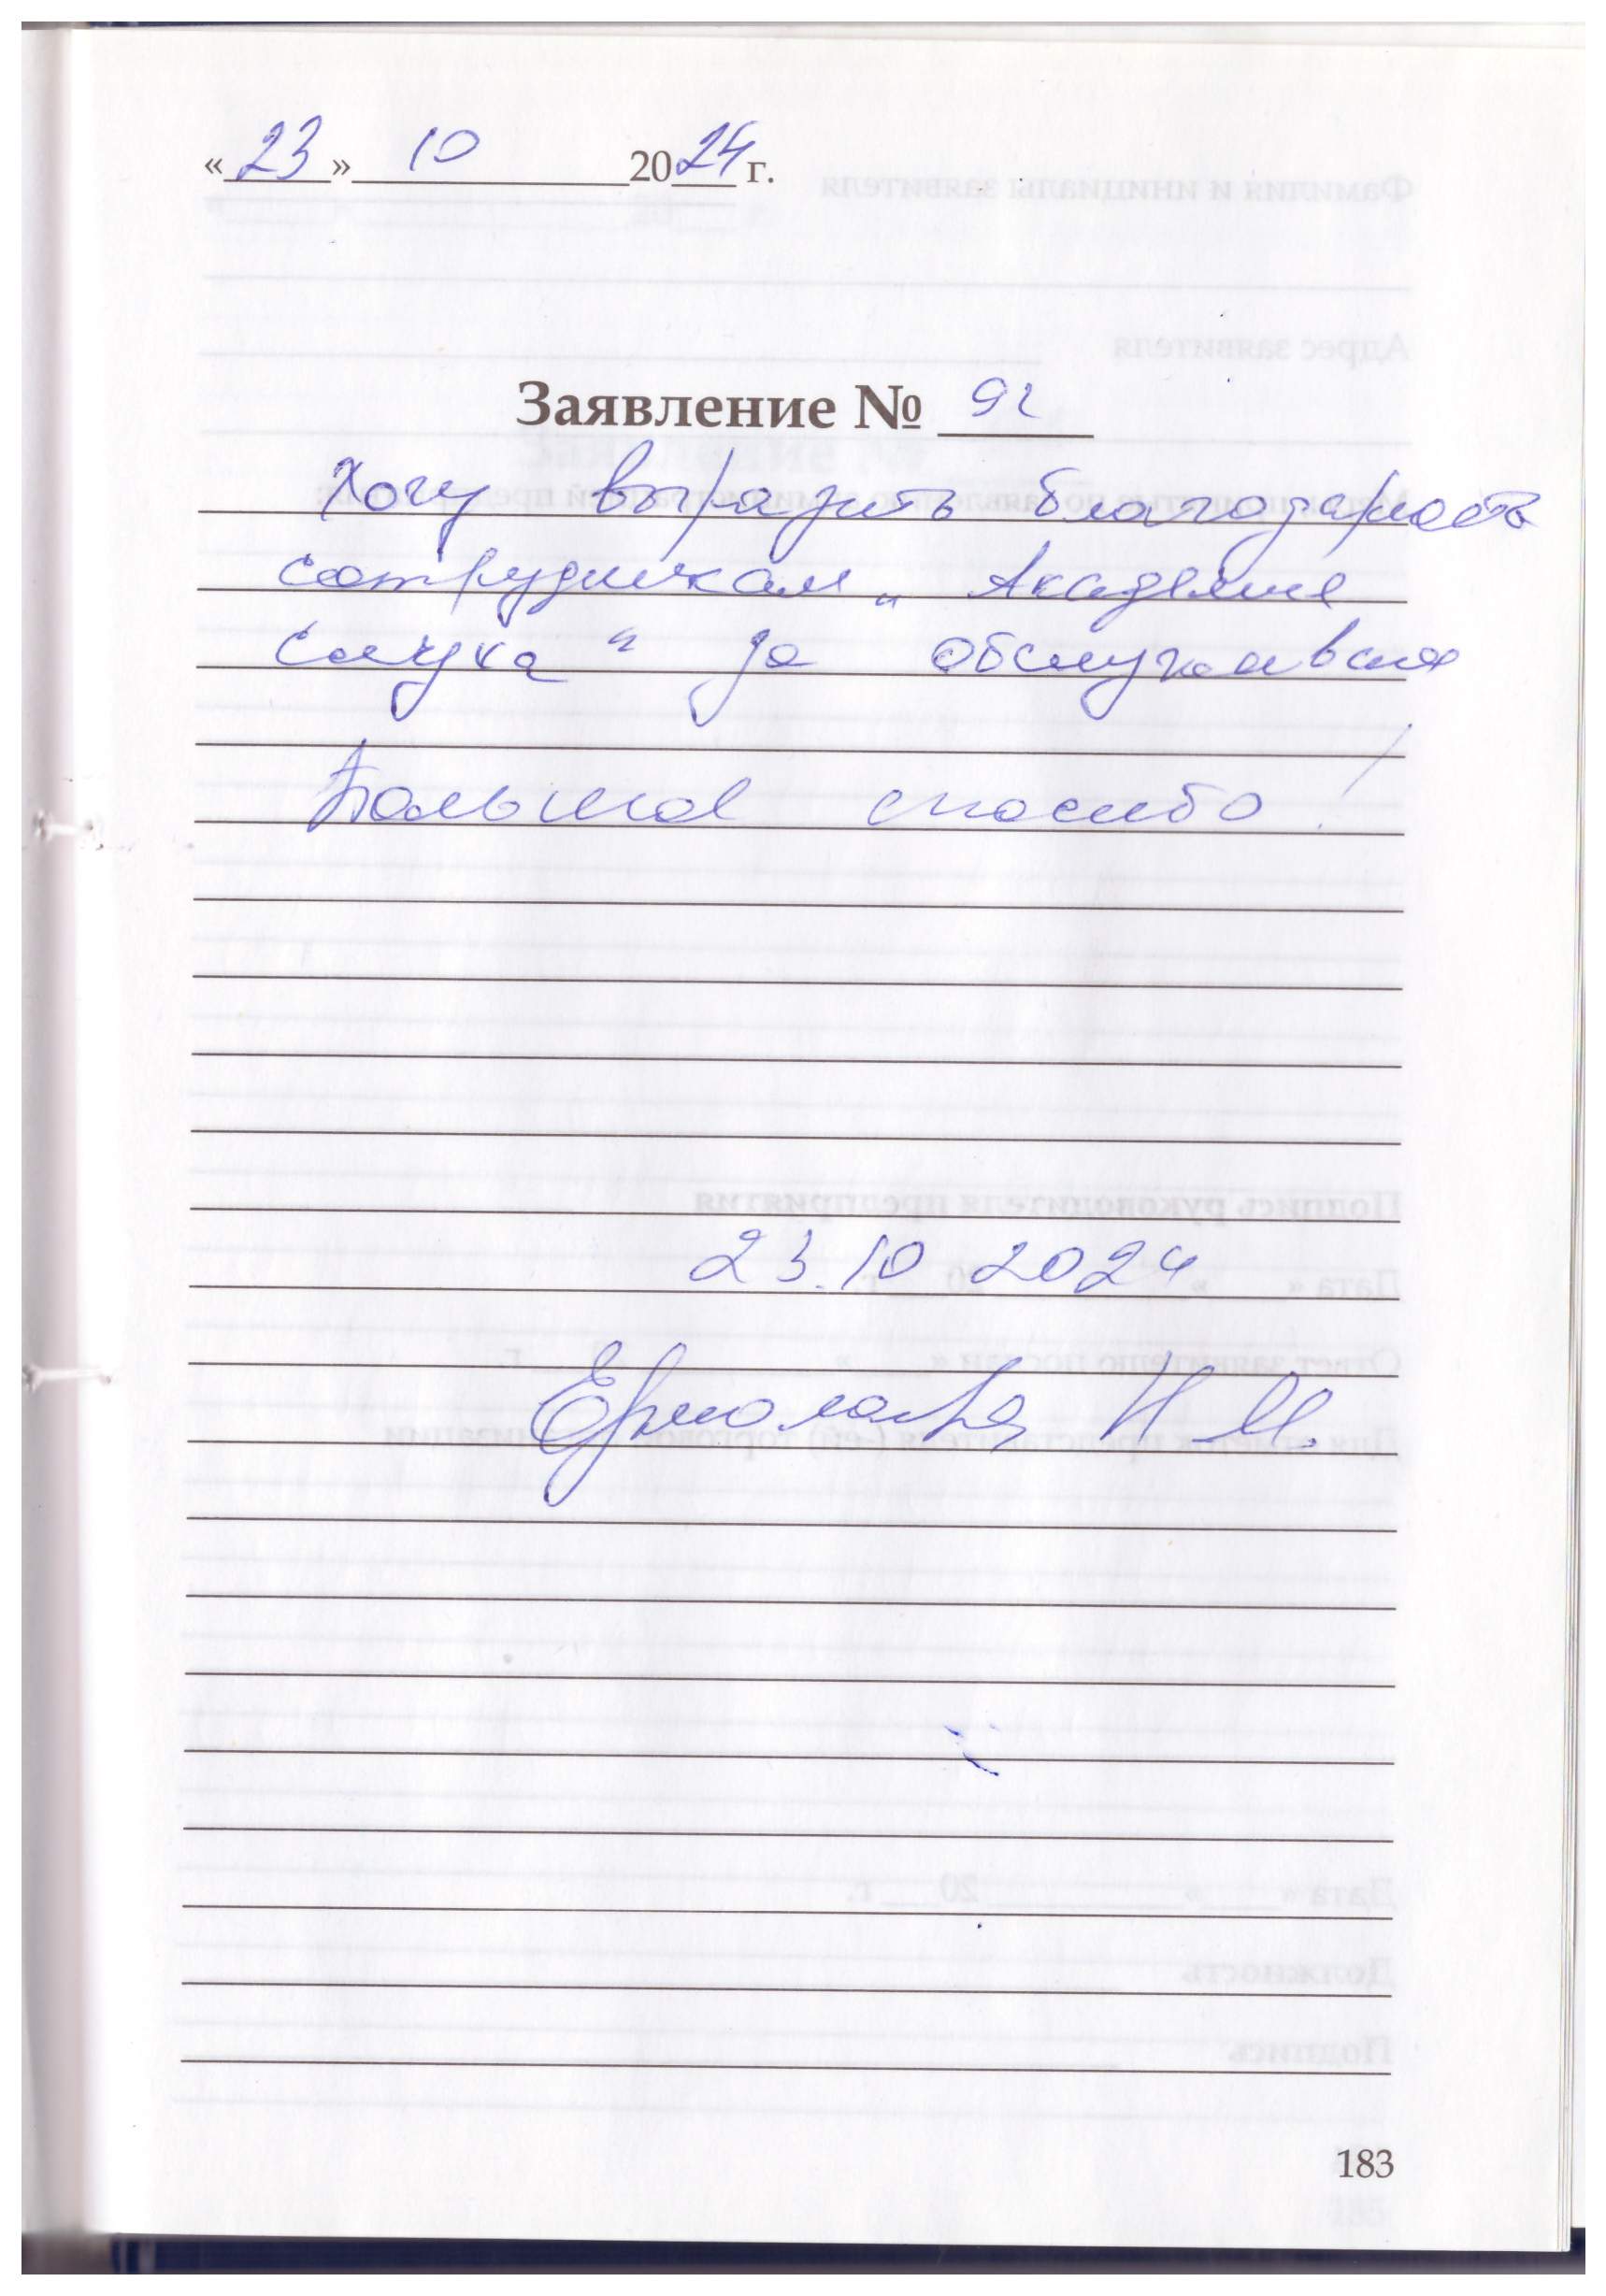 «23» 10 2024 г.
Заявление № 92
Хочу выразить благодарность
сотрудникам „Академия
слуха“ за обслуживание
Большое спасибо!
23.10 2024
Н. М.
183